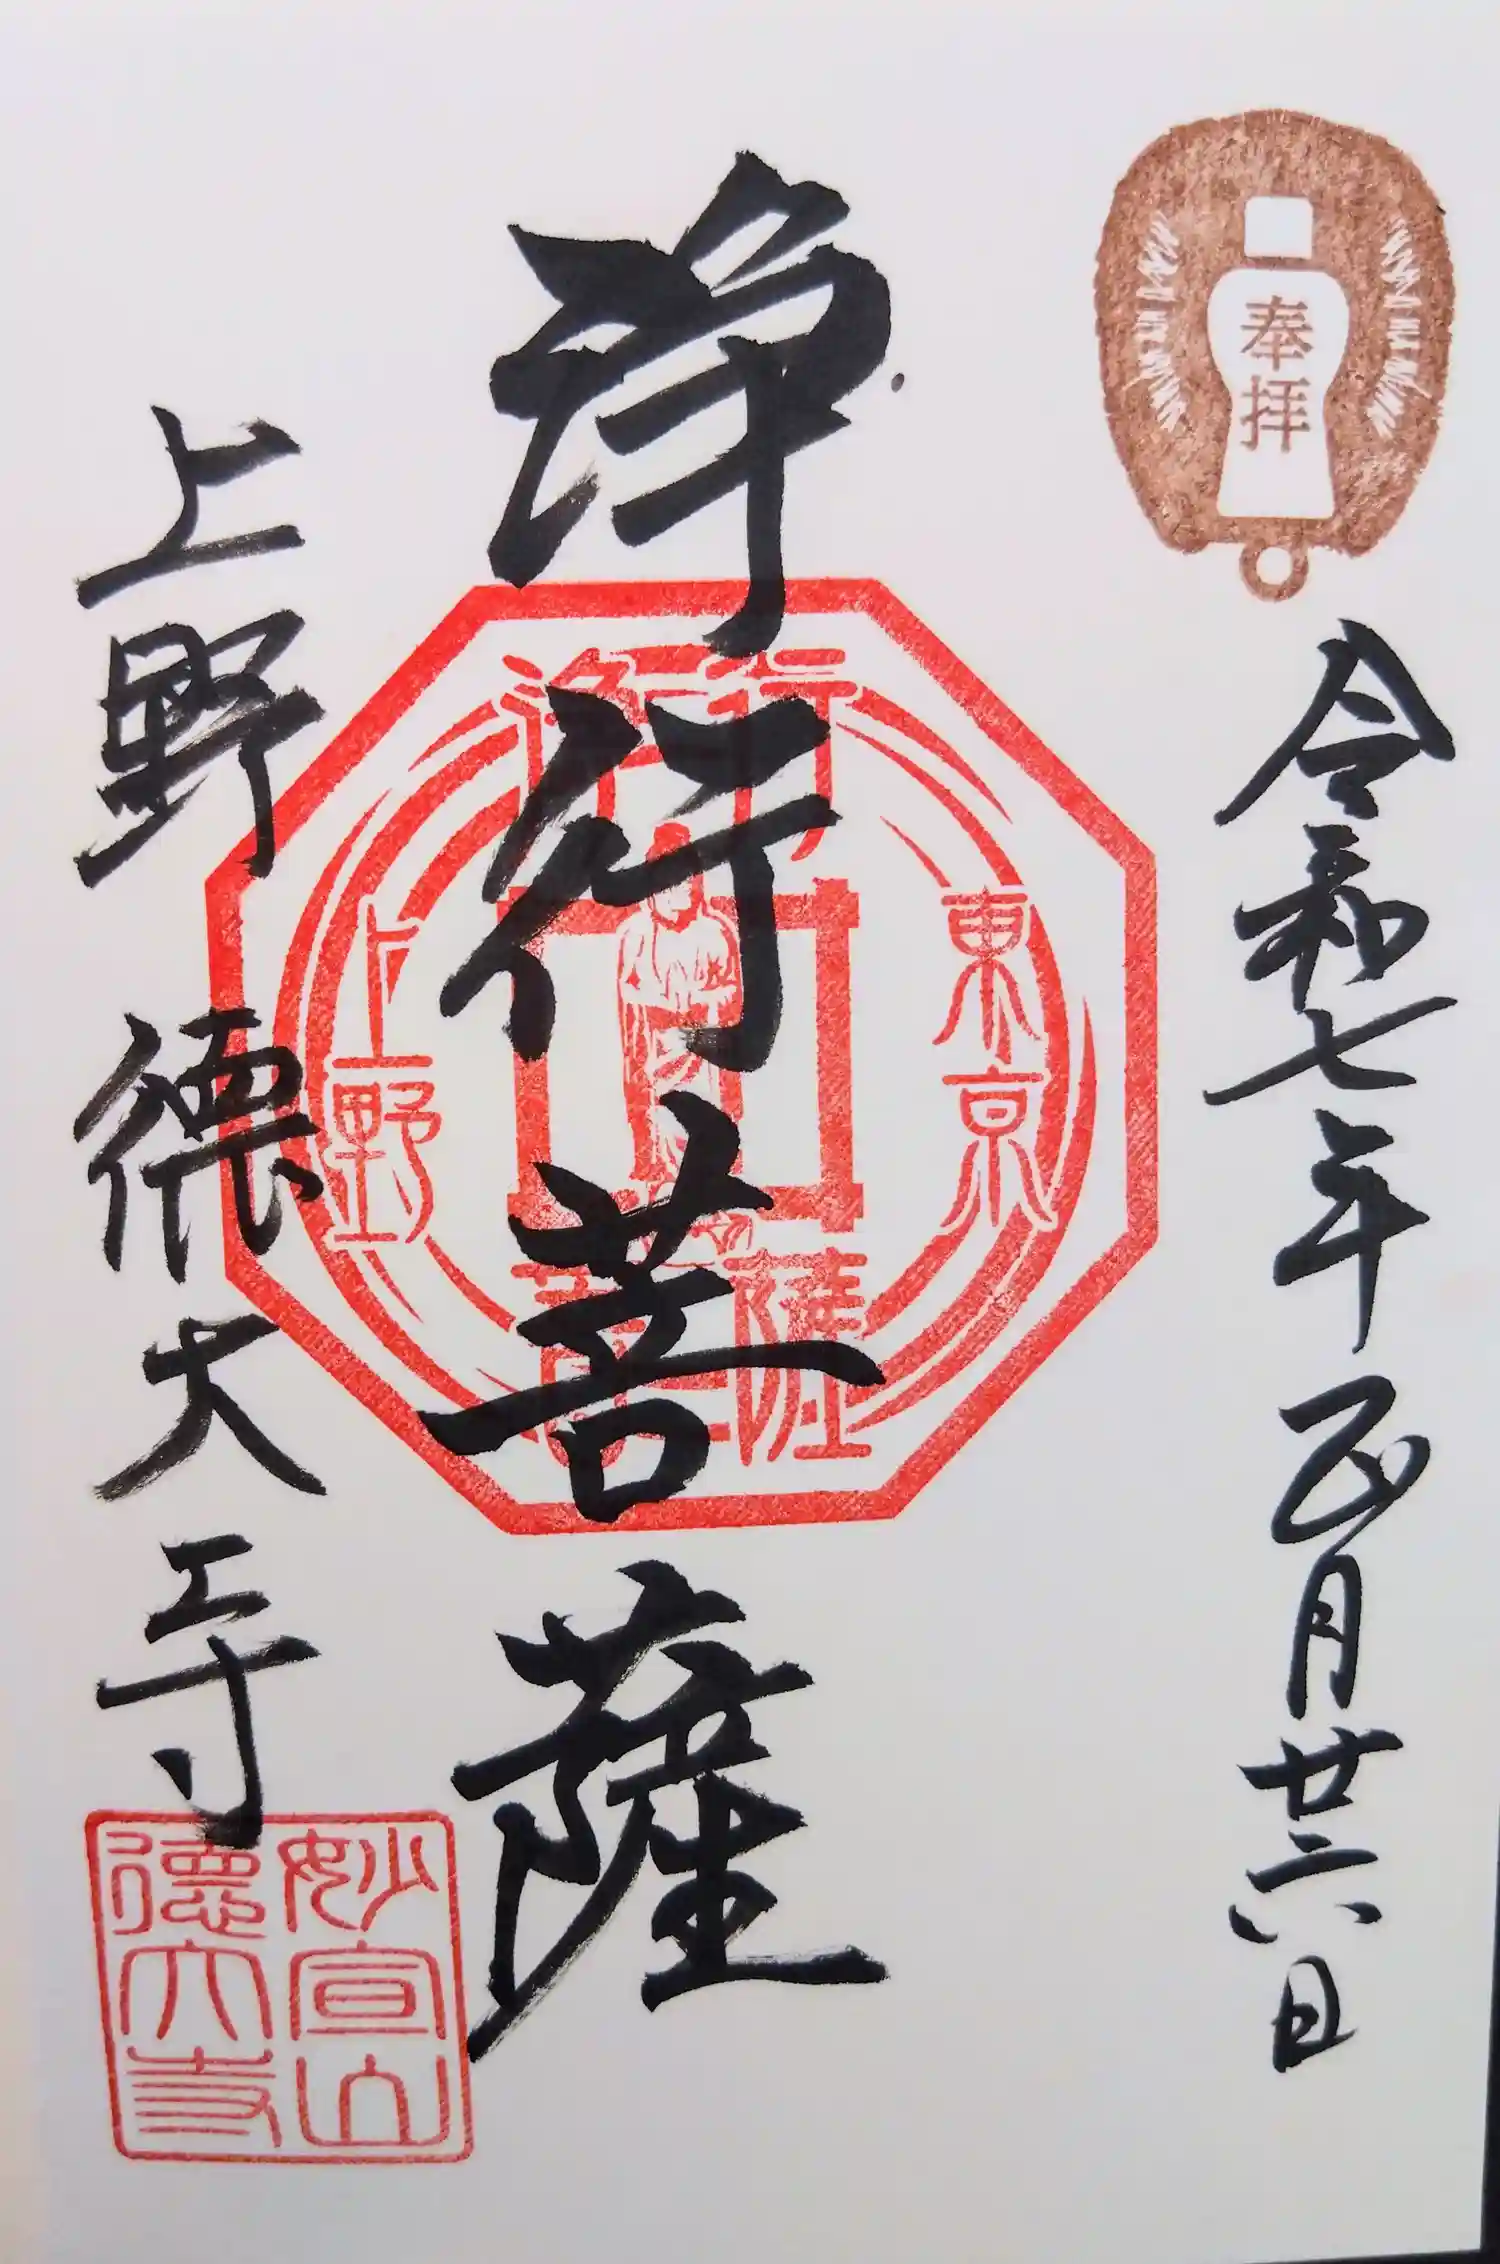 奉拝
令和七年正月廿六日
浄行菩薩
浄行
菩薩
東京
上野
上野 德大寺
妙宣山
德大寺